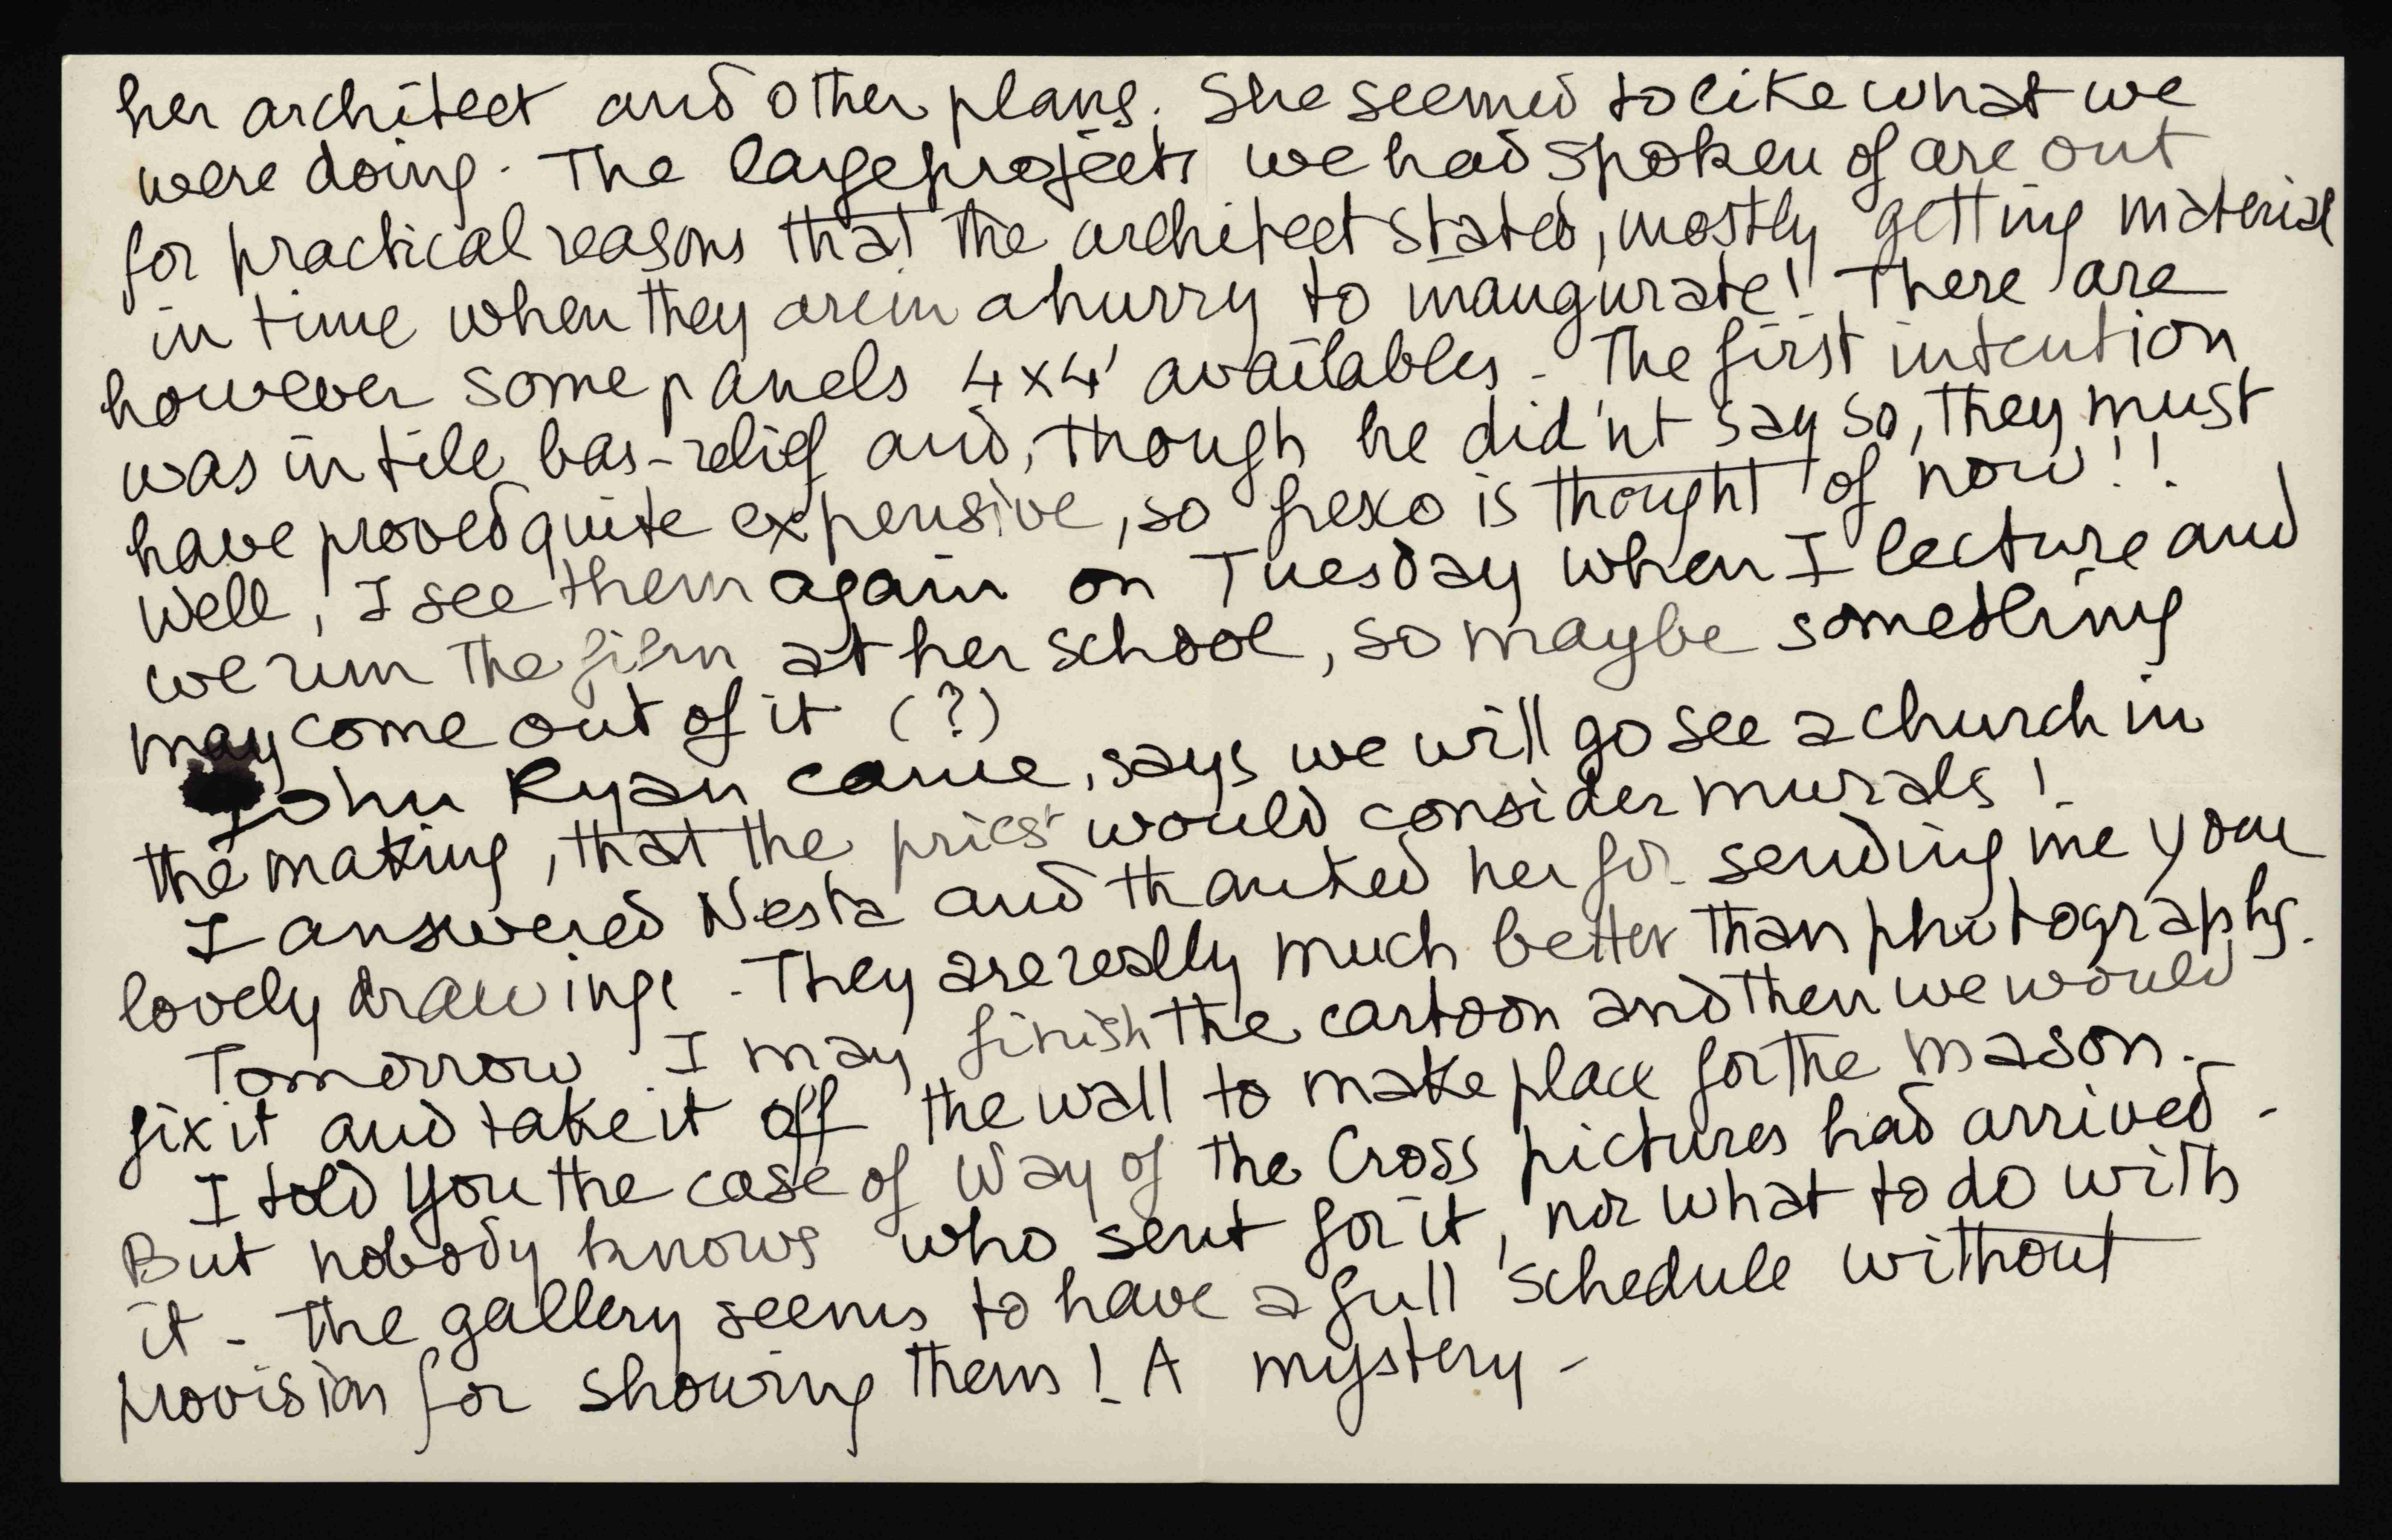 her architect and other plans. She seemed to like what we
were doing. The large projects we had spoken of are out
for practical reasons that the architect stated, mostly getting material
in time when they are in a hurry to inaugurate! There are
however some panels 4x4' availables - The first intention
was in tile bas-relief and, though he did'nt say so, they must
have proved quite expensive, so fresco is thought of now!!
Well, I see them again on Tuesday when I lecture and
we run the film at her school, so maybe something
may come out of it (?)
John Ryan came, says we will go see a church in
the making, that the priest would consider murals!
I answered Nesta and thanked her for sending me your
lovely drawings. They are really much better than photographs.
Tomorrow I may finish the cartoon and then we would
fix it and take it off the wall to make place for the mason.
I told you the case of Way of the Cross pictures had arrived -
But nobody knows who sent for it, nor what to do with
it - The gallery seems to have a full schedule without
provision for showing them! A mystery -